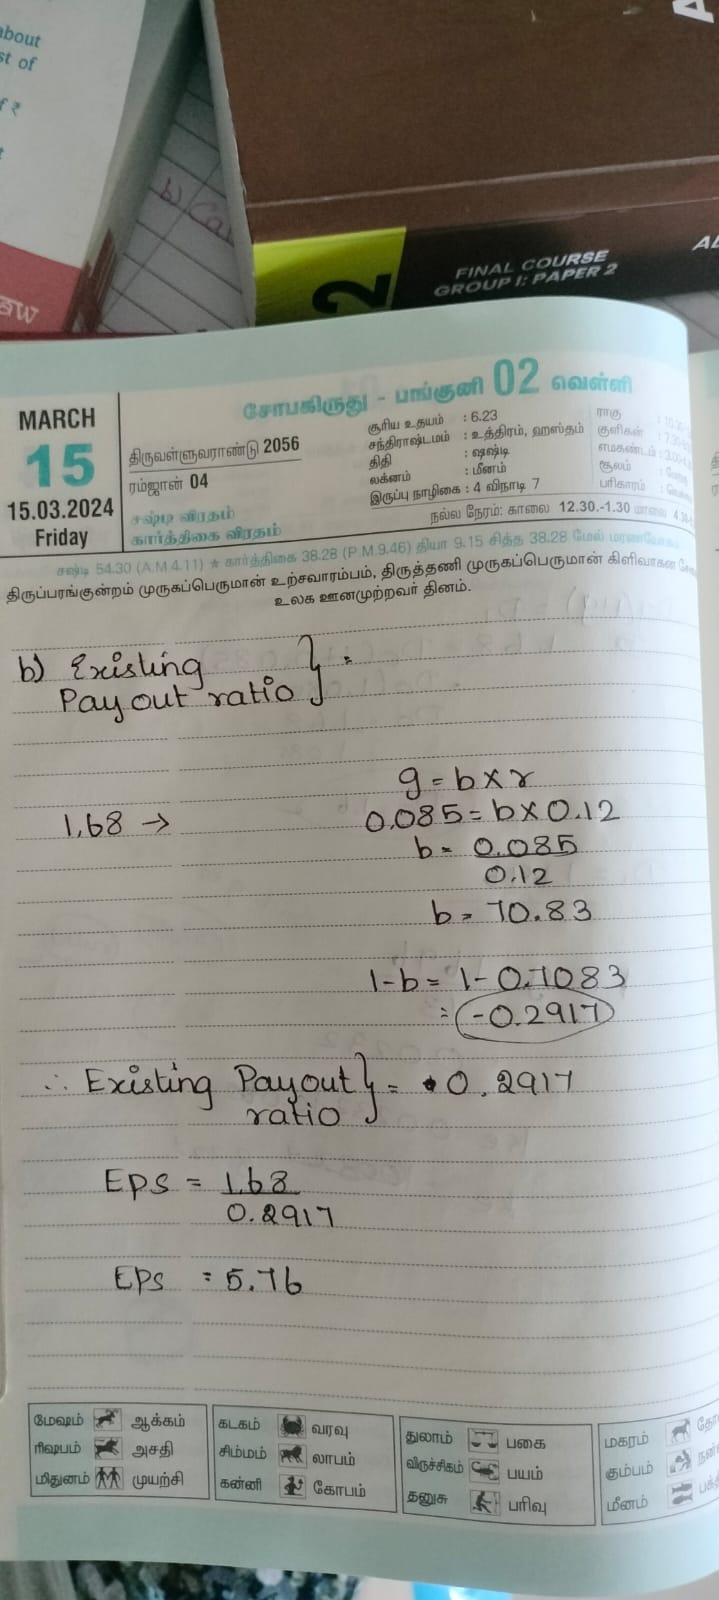 about
st of
f ₹
b) Ca
FINAL COURSE
GROUP I: PAPER 2
2
சோபகிருது - பங்குனி 02 வெள்ளி
MARCH
15
15.03.2024
Friday
திருவள்ளுவராண்டு 2056
ரம்ஜான் 04
சஷ்டி விரதம்
கார்த்திகை விரதம்
சூரிய உதயம் : 6.23
சந்திராஷ்டமம் : உத்திரம், ஹஸ்தம்
திதி : ஷஷ்டி
லக்னம் : மீனம்
இருப்பு நாழிகை : 4 விநாடி 7
ராகு
குளிகன்
எமகண்டம்
சூலம்
பரிகாரம்
நல்ல நேரம்: காலை 12.30.-1.30 மாலை
சஷ்டி 54.30 (A.M 4.11) ★ கார்த்திகை 38.28 (P.M.9.46) தியா 9.15 சித்த 38.28 மேல்
திருப்பரங்குன்றம் முருகப்பெருமான் உற்சவாரம்பம், திருத்தணி முருகப்பெருமான் கிளிவாகன
உலக ஊனமுற்றவர் தினம்.
b) Existing
Payout ratio } =
g = b x r
1.68 → 0.085 = b x 0.12
b = 0.085
0.12
b = 70.83
1-b = 1- 0.7083
= -0.2917
∴ Existing Payout } = 0.2917
ratio
EPS = 1.68
0.2917
EPS = 5.76
மேஷம் ஆக்கம்
ரிஷபம் அசதி
மிதுனம் முயற்சி
கடகம் வரவு
சிம்மம் லாபம்
கன்னி கோபம்
துலாம் பகை
விருச்சிகம் பயம்
தனுசு பரிவு
மகரம்
கும்பம்
மீனம்